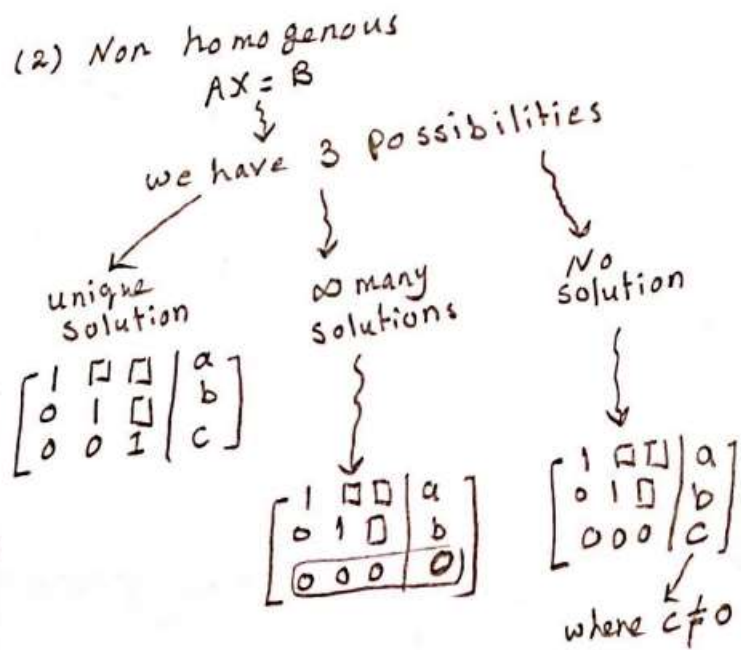 (2) Non homogenous
AX = B
we have 3 possibilities
unique
solution
[ 1 □ □ | a ]
[ 0 1 □ | b ]
[ 0 0 1 | c ]
∞ many
solutions
[ 1 □ □ | a ]
[ 0 1 □ | b ]
[ 0 0 0 | 0 ]
No
solution
[ 1 □ □ | a ]
[ 0 1 □ | b ]
[ 0 0 0 | c ]
where c ≠ 0